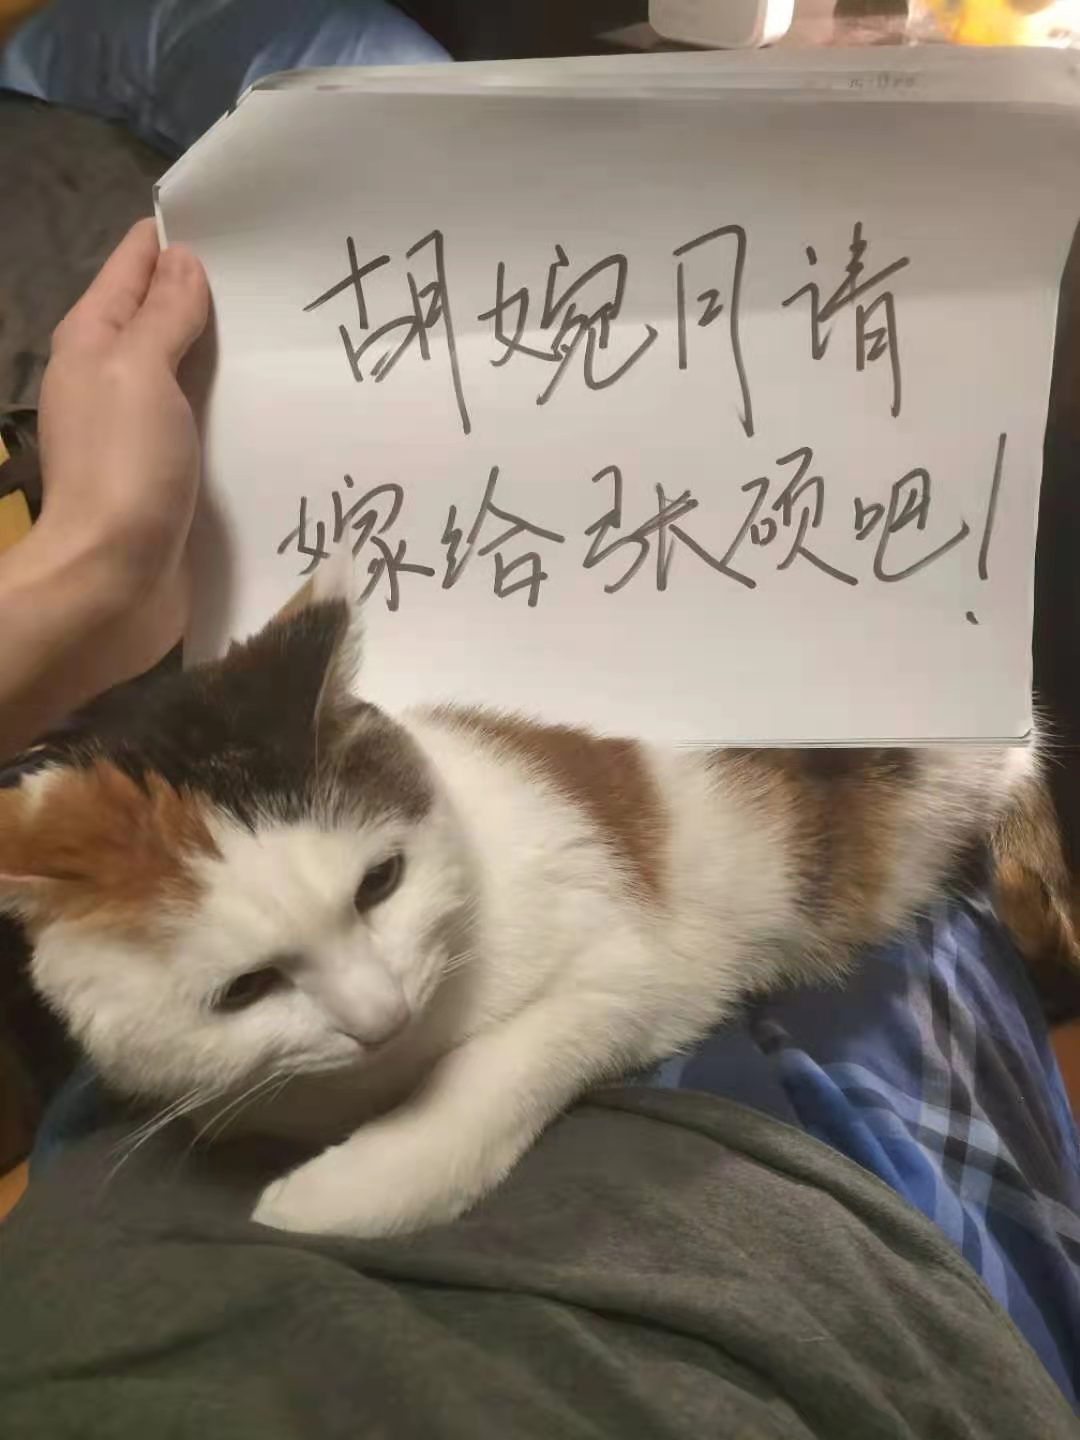 胡婉月请
嫁给张硕吧！